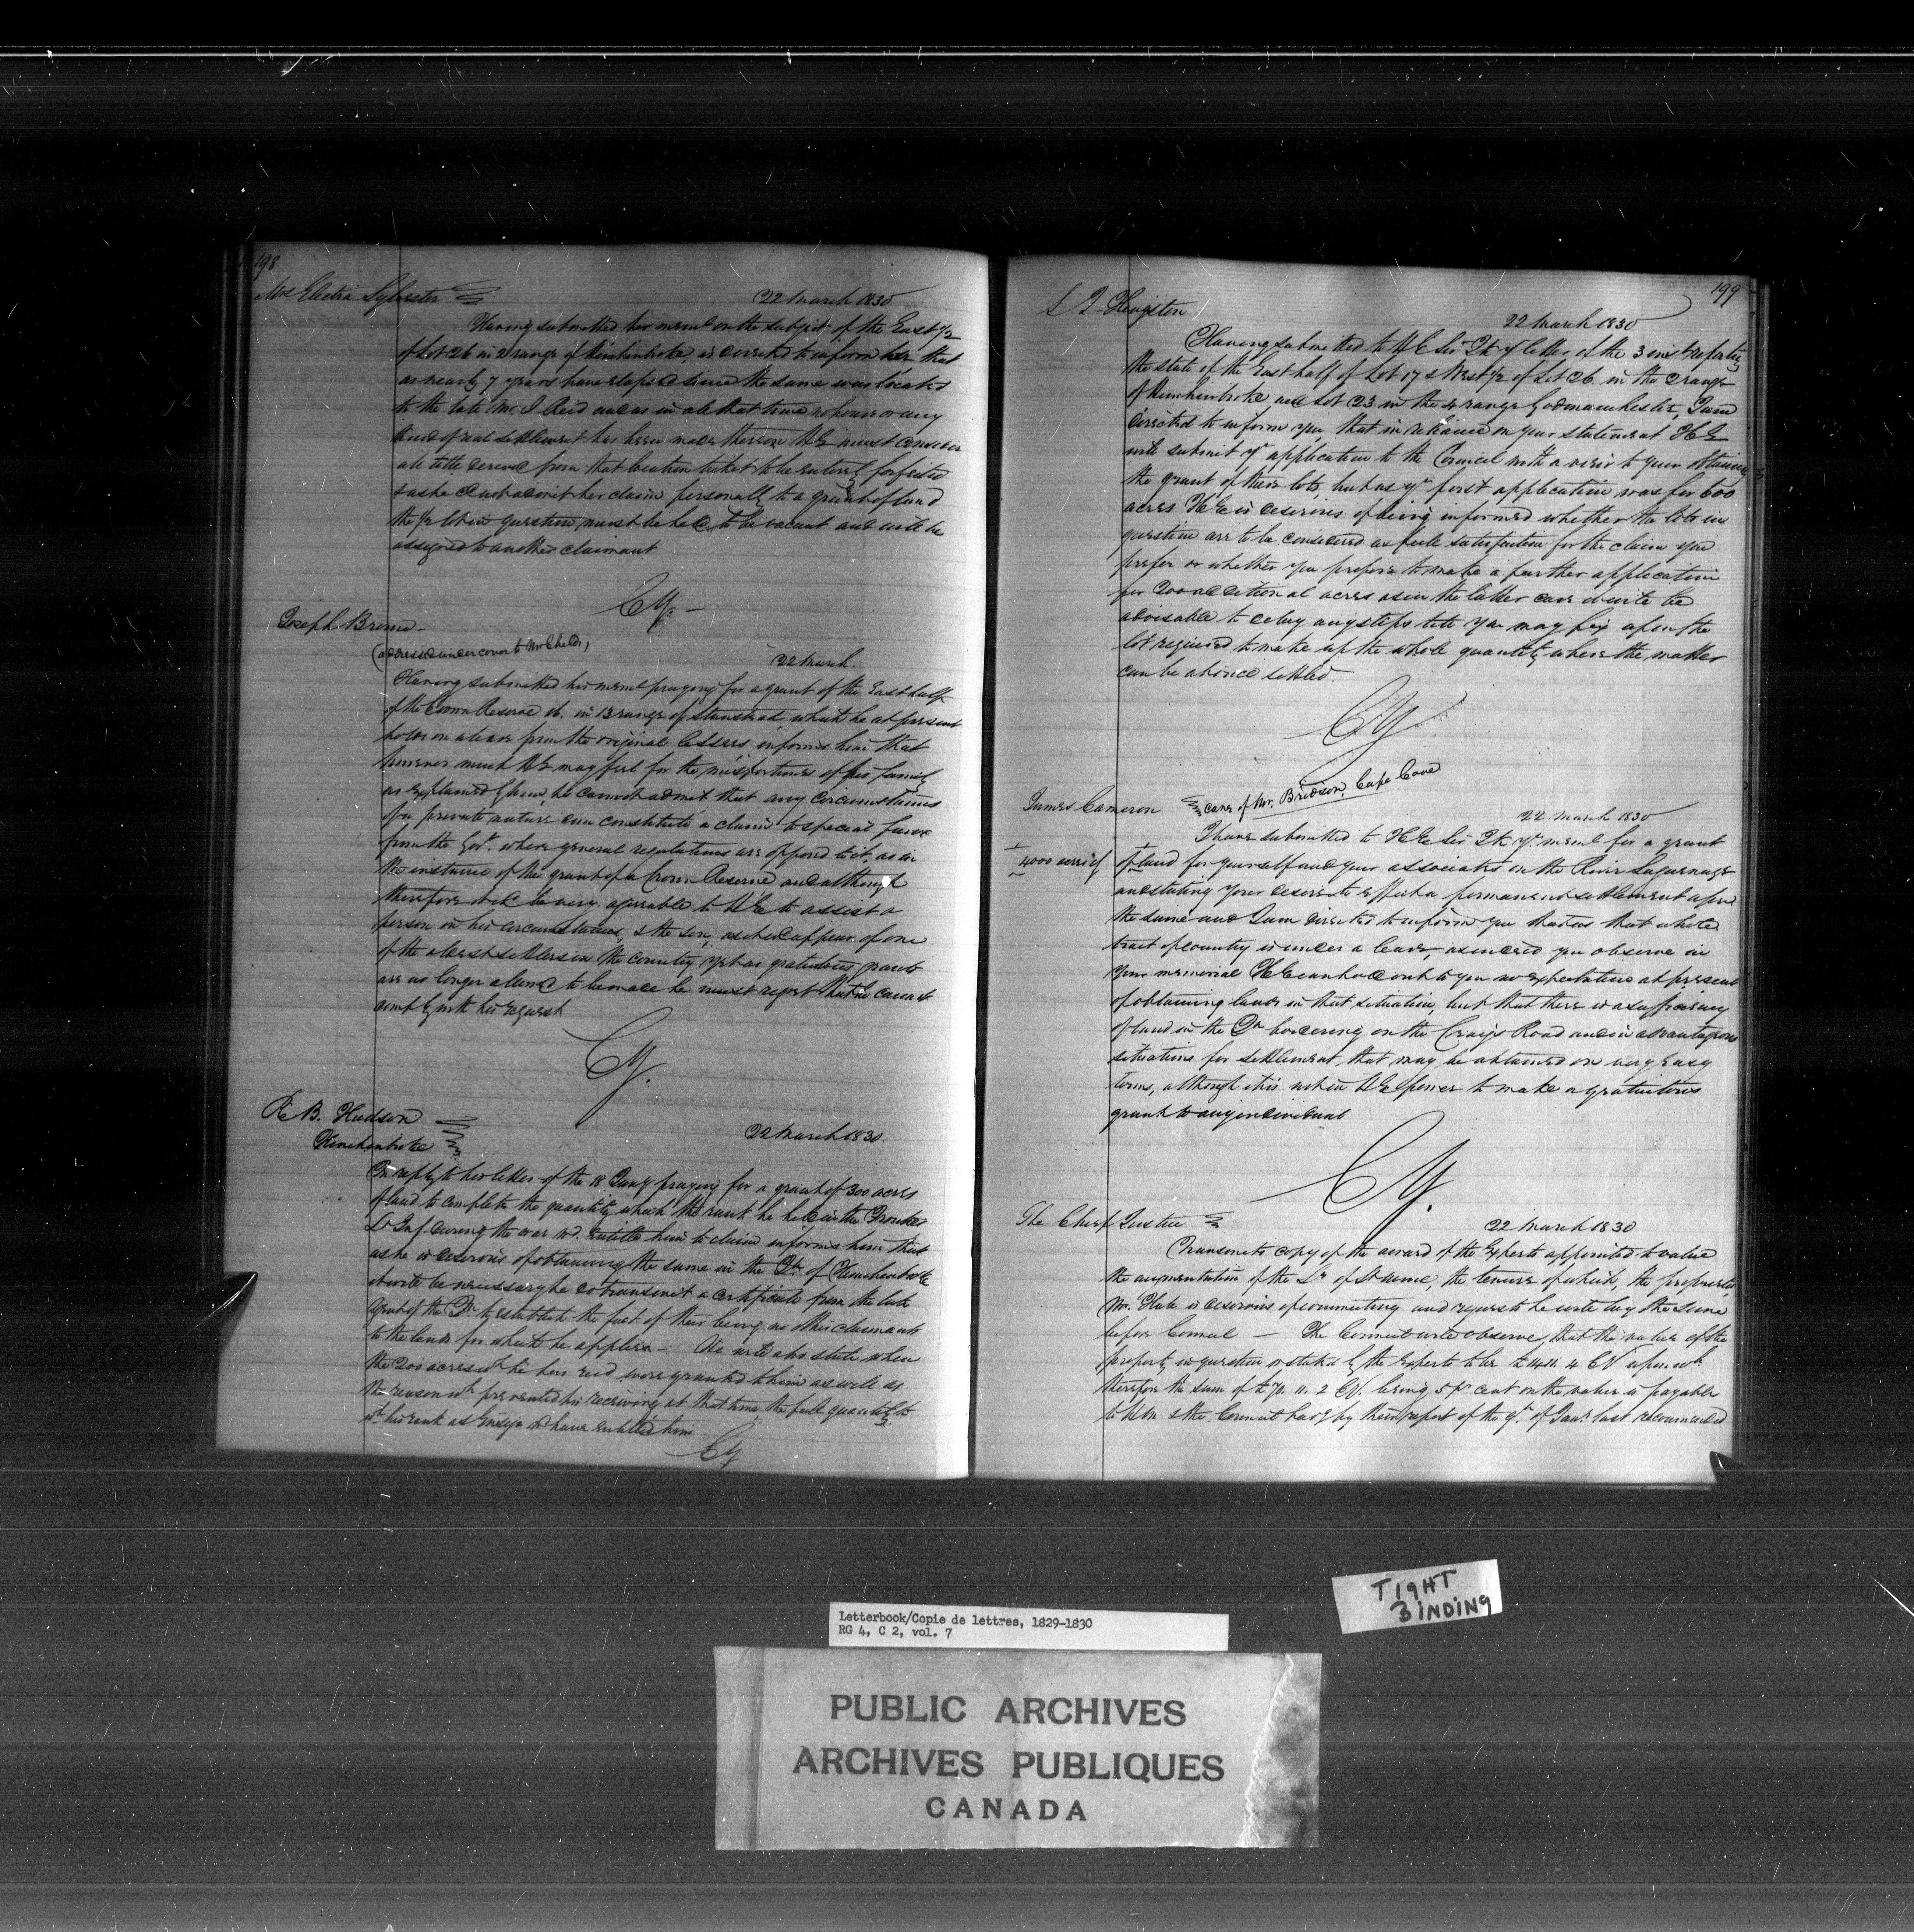 198
Mrs Electa Sylvester
22 March 1830
Having submitted her meml on the subject of the East 1/2
of Lot 26 in 2 range of Hinchenbroke, is directed to inform her that
as nearly 7 years have elapsed since the same was located
to the late Mr. J Reid and as in all that time no house or any
kind of real settlement has been made thereon HE must consider
all title derived from that location ticket to be entirely forfeited
& as he cannot admit her claim personally to a grant of land
the 1/2 lot in question must be held to be vacant and will be
assigned to another claimant
CY.
Joseph Brown
(addressed under cover to Mr Childs)
22 March.
Having submitted his meml praying for a grant of the East half
of the Crown Reserve 16. in 13 range of Stanstead which he at present
holds on a lease from the original Lessees informs him that
however much HE may feel for the misfortunes of his family
as explained by him, he cannot admit that any circumstances
of a private nature can constitute a claim to special favor
from the Govt. where general regulations are opposed to it, as in
the instance of the grant of a Crown Reserve and although
therefore it wd be very agreeable to HE to assist a
person in his circumstances, & the son, as he wd appear of one
of the oldest settlers in the country, yet as gratuitous grants
are no longer allowed to be made he must regret that he cannot
comply with his request
CY.
R B. Hudson
Hinchenbroke
22 March 1830.
In reply to his letter of the 18 Jany praying for a grant of 300 acres
of land to complete the quantity which the rank he held in the Frontier
Lt Inf during the war wd. entitle him to claim informs him that
as he is desirous of obtaining the same in the Tp. of Hinchenbroke
it will be necessary he do transmit a certificate from the late
Agent of the Tp. to establish the fact of their being no other claimants
to the lands for which he applies - He will also state when
the 200 acres wh he has recd were granted to him as well as
the reason wh prevented his receiving at that time the full quantity to
wh his rank as Ensign wd have entitled him
CY
199
22 March 1830
Having submitted to HE Sir Jk yr letter of the 3 inst reporting
the state of the East half of Lot 17 & West 1/2 of Lot 26 in the 2 range
of Hinchenbroke and Lot 23 in the 4 range Godmanchester, I am
directed to inform you that in reliance on your statement HE
will submit yr application to the Council with a view to your obtaining
the grant of these lots, but as yr first application was for 600
acres HE is desirous of being informed whether the lots in
question are to be considered as full satisfaction for the claim you
prefer or whether you propose to make a further application
for 200 additional acres as in the latter case it will be
advisable to delay any steps till you may fix upon the
lot required to make up the whole quantity when the matter
can be at once settled.
CY
James Cameron
care of Mr. Bridson, Cape Cove
22 March 1830
I have submitted to HE Sir Jk yr meml for a grant
4000 acres of
of land for yourself and your associates on the River Saguenay
and stating your desire to effect a permanent settlement upon
the same and I am directed to inform you that as that whole
tract of country is under a lease, as indeed you observe in
your memorial HE can hold out to you no expectation at present
of obtaining lands in that situation, but that there is a sufficiency
of land in the Tps bordering on the Craigs Road and in advantageous
situations for settlement that may be obtained on very easy
terms, although it is not in HEs power to make a gratuitous
grant to any individual
CY.
The Chief Justice
22 March 1830
Transmits copy of the award of the Experts appointed to value
the augmentation of the Sr of St Anne, the tenure of which, the proprietor
Mr. Hale is desirous of commuting and requests he will lay the same
before Council — The Council will observe, that the value of the
property in question is stated by the Experts to be
therefore the sum of being 5 pr cent on the value is payable
to HM & the Council having by their report of the 9th of Jany last recommended
TIGHT
BINDING
Letterbook/Copie de lettres, 1829-1830
RG 4, C 2, vol. 7
PUBLIC ARCHIVES
ARCHIVES PUBLIQUES
CANADA